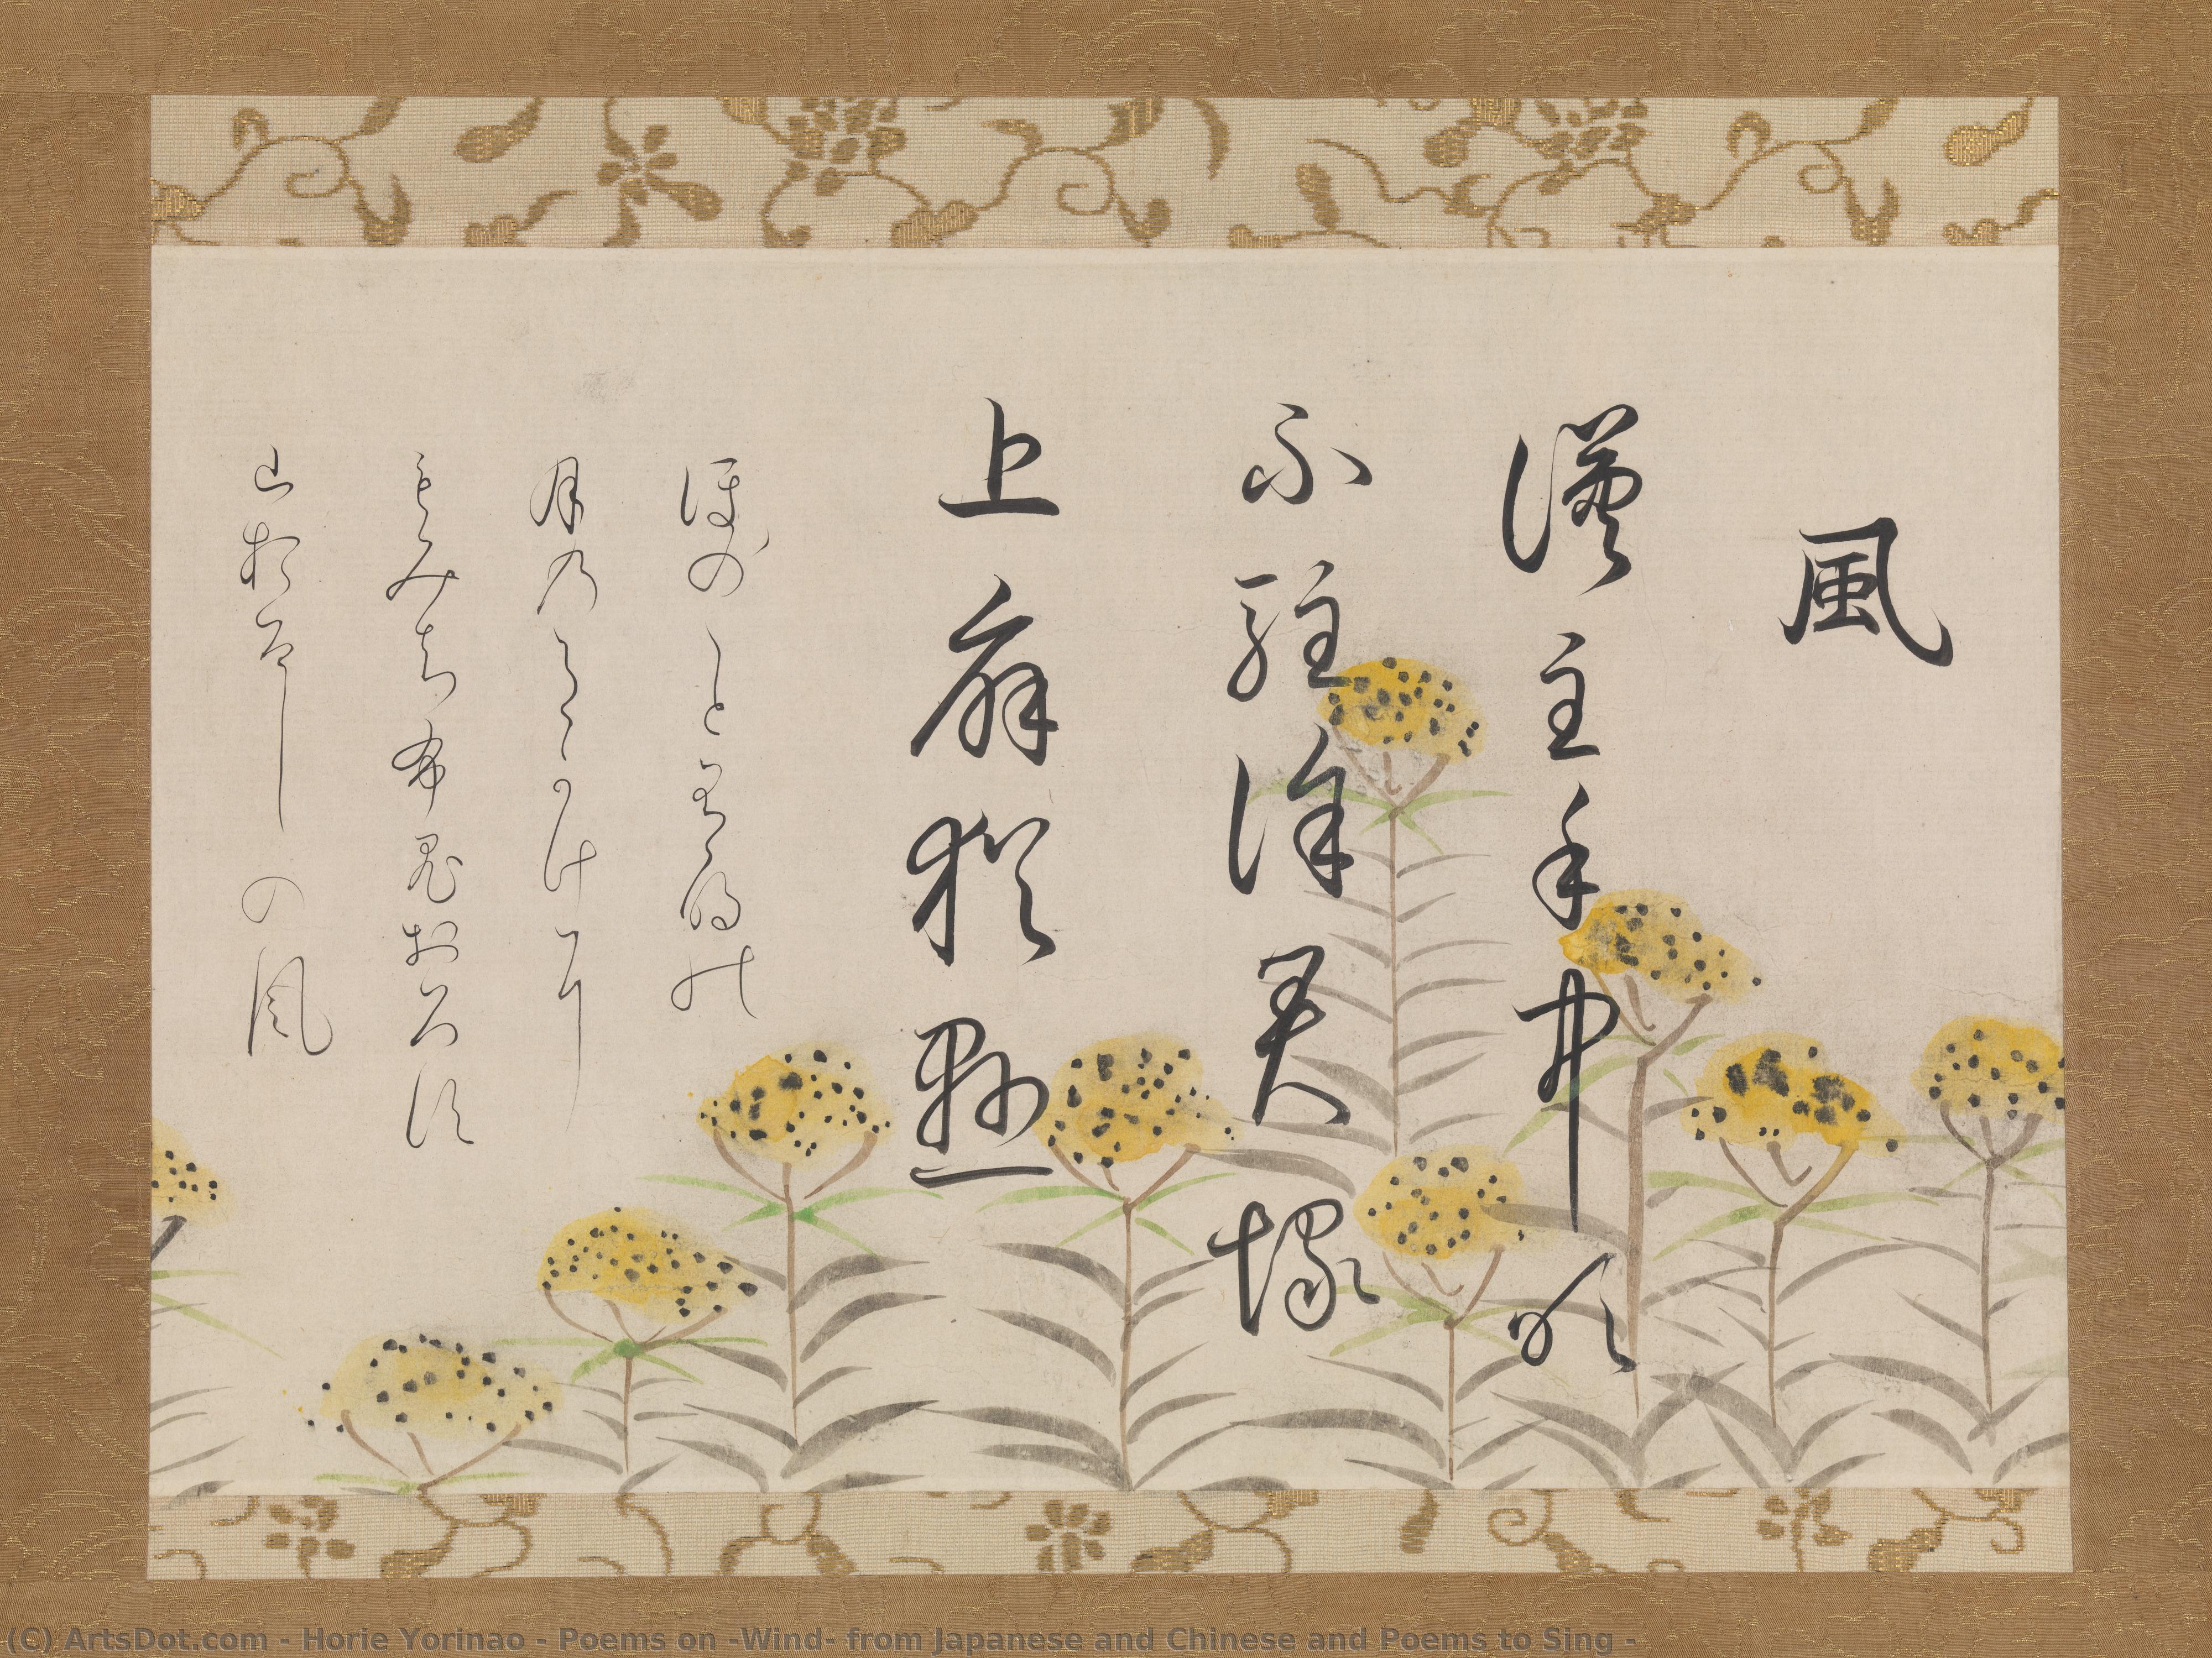 風
漢主手中吹
不駐徐君塚
上扇猶懸
ほの〱とありあけの
月の月かけに
もみちふきおろす
山おろしの風
(C) ArtsDot.com - Horie Yorinao - Poems on -Wind- from Japanese and Chinese and Poems to Sing -